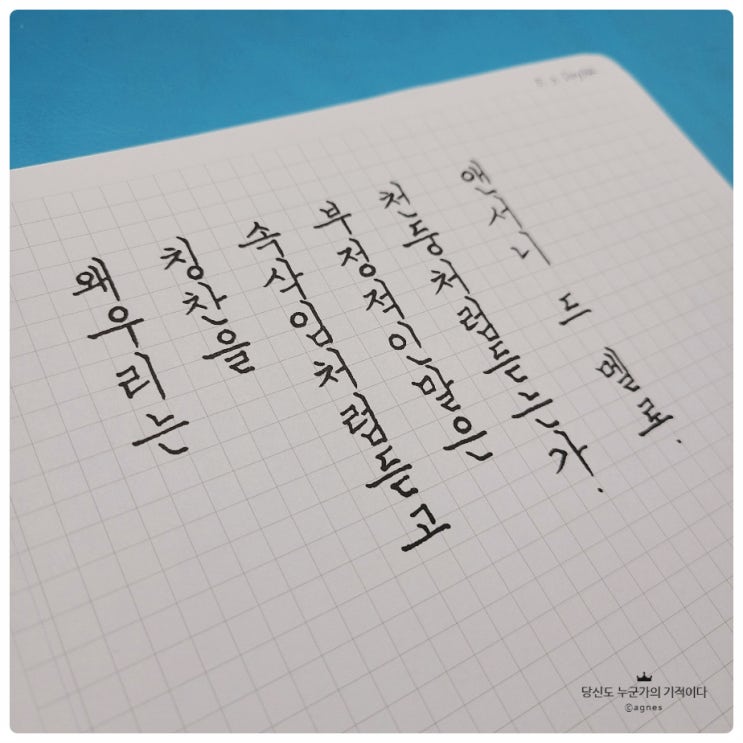 왜 우리는
칭찬을
속삭임처럼 듣고
부정적인 말은
천둥처럼 듣는가.
앤서니 드 멜로.
당신도 누군가의 기적이다
©agnes